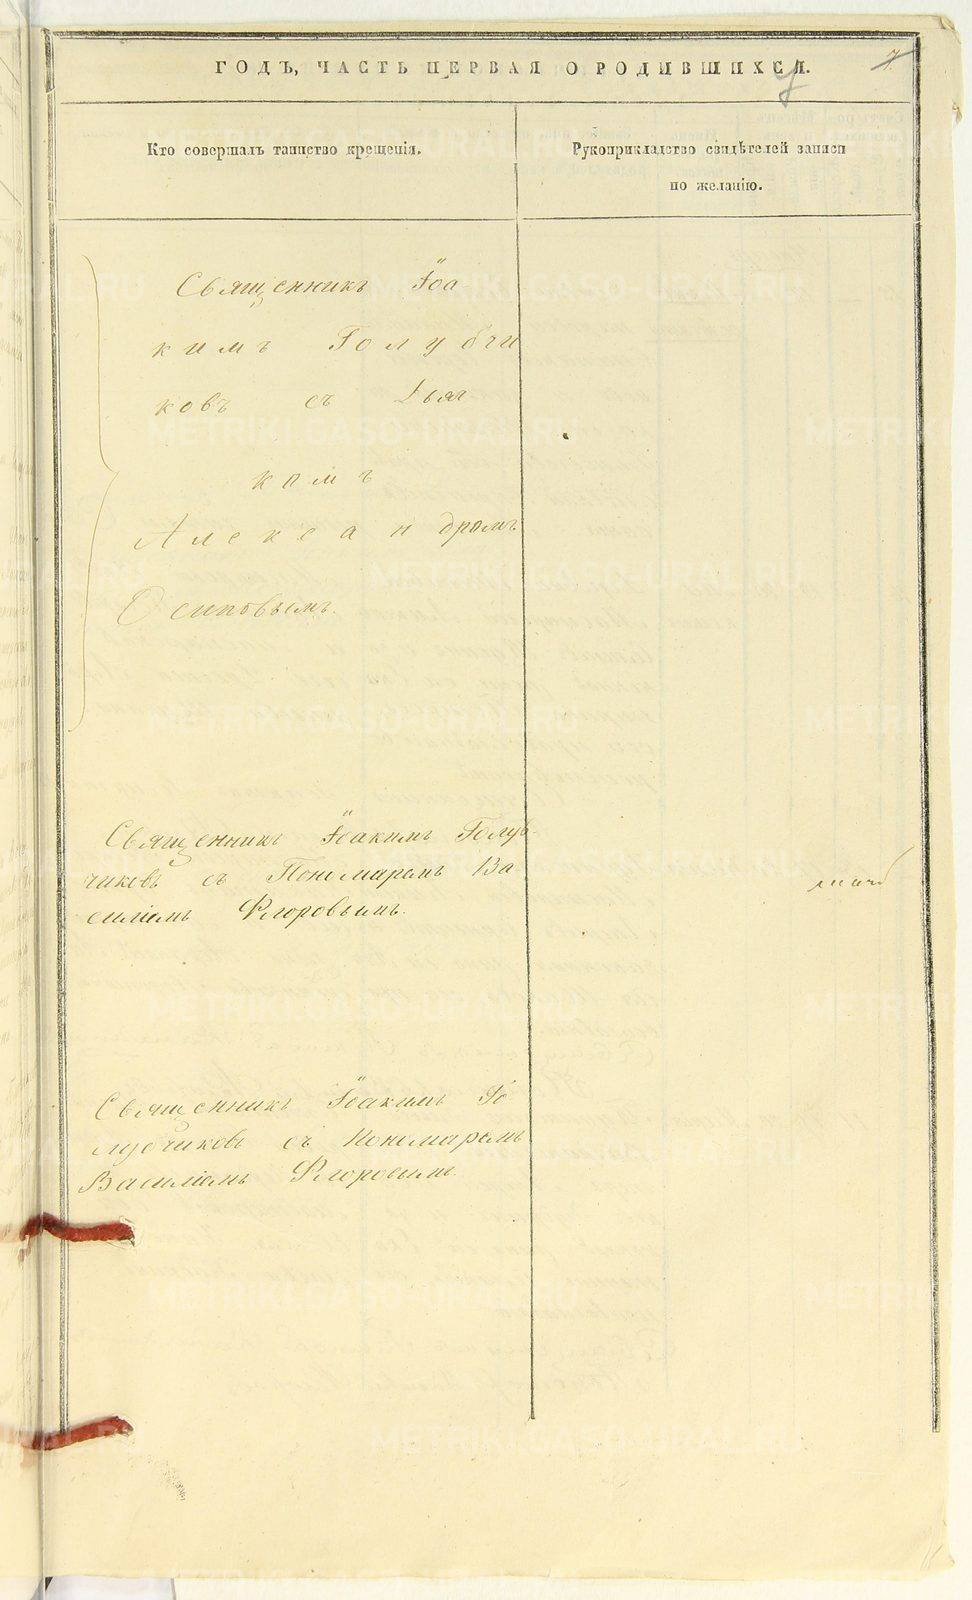 ГОДЪ, ЧАСТЬ ПЕРВАЯ О РОДИВШИХСЯ.
7
Кто совершалъ таинство крещенія.
Рукоприкладство свидѣтелей записи
по желанію.
Священникъ Іоа
кимъ Голубчи
ковъ съ Дьяч
комъ
Александромъ
Осиповымъ.
Священникъ Іоакимъ Голуб-
чиковъ съ Пономаремъ Ва
силіемъ Флоровымъ.
Священникъ Іоакимъ Го
лубчиковъ съ Пономаремъ
Василіемъ Флоровымъ.
METRIKI.GASO-URAL.RU